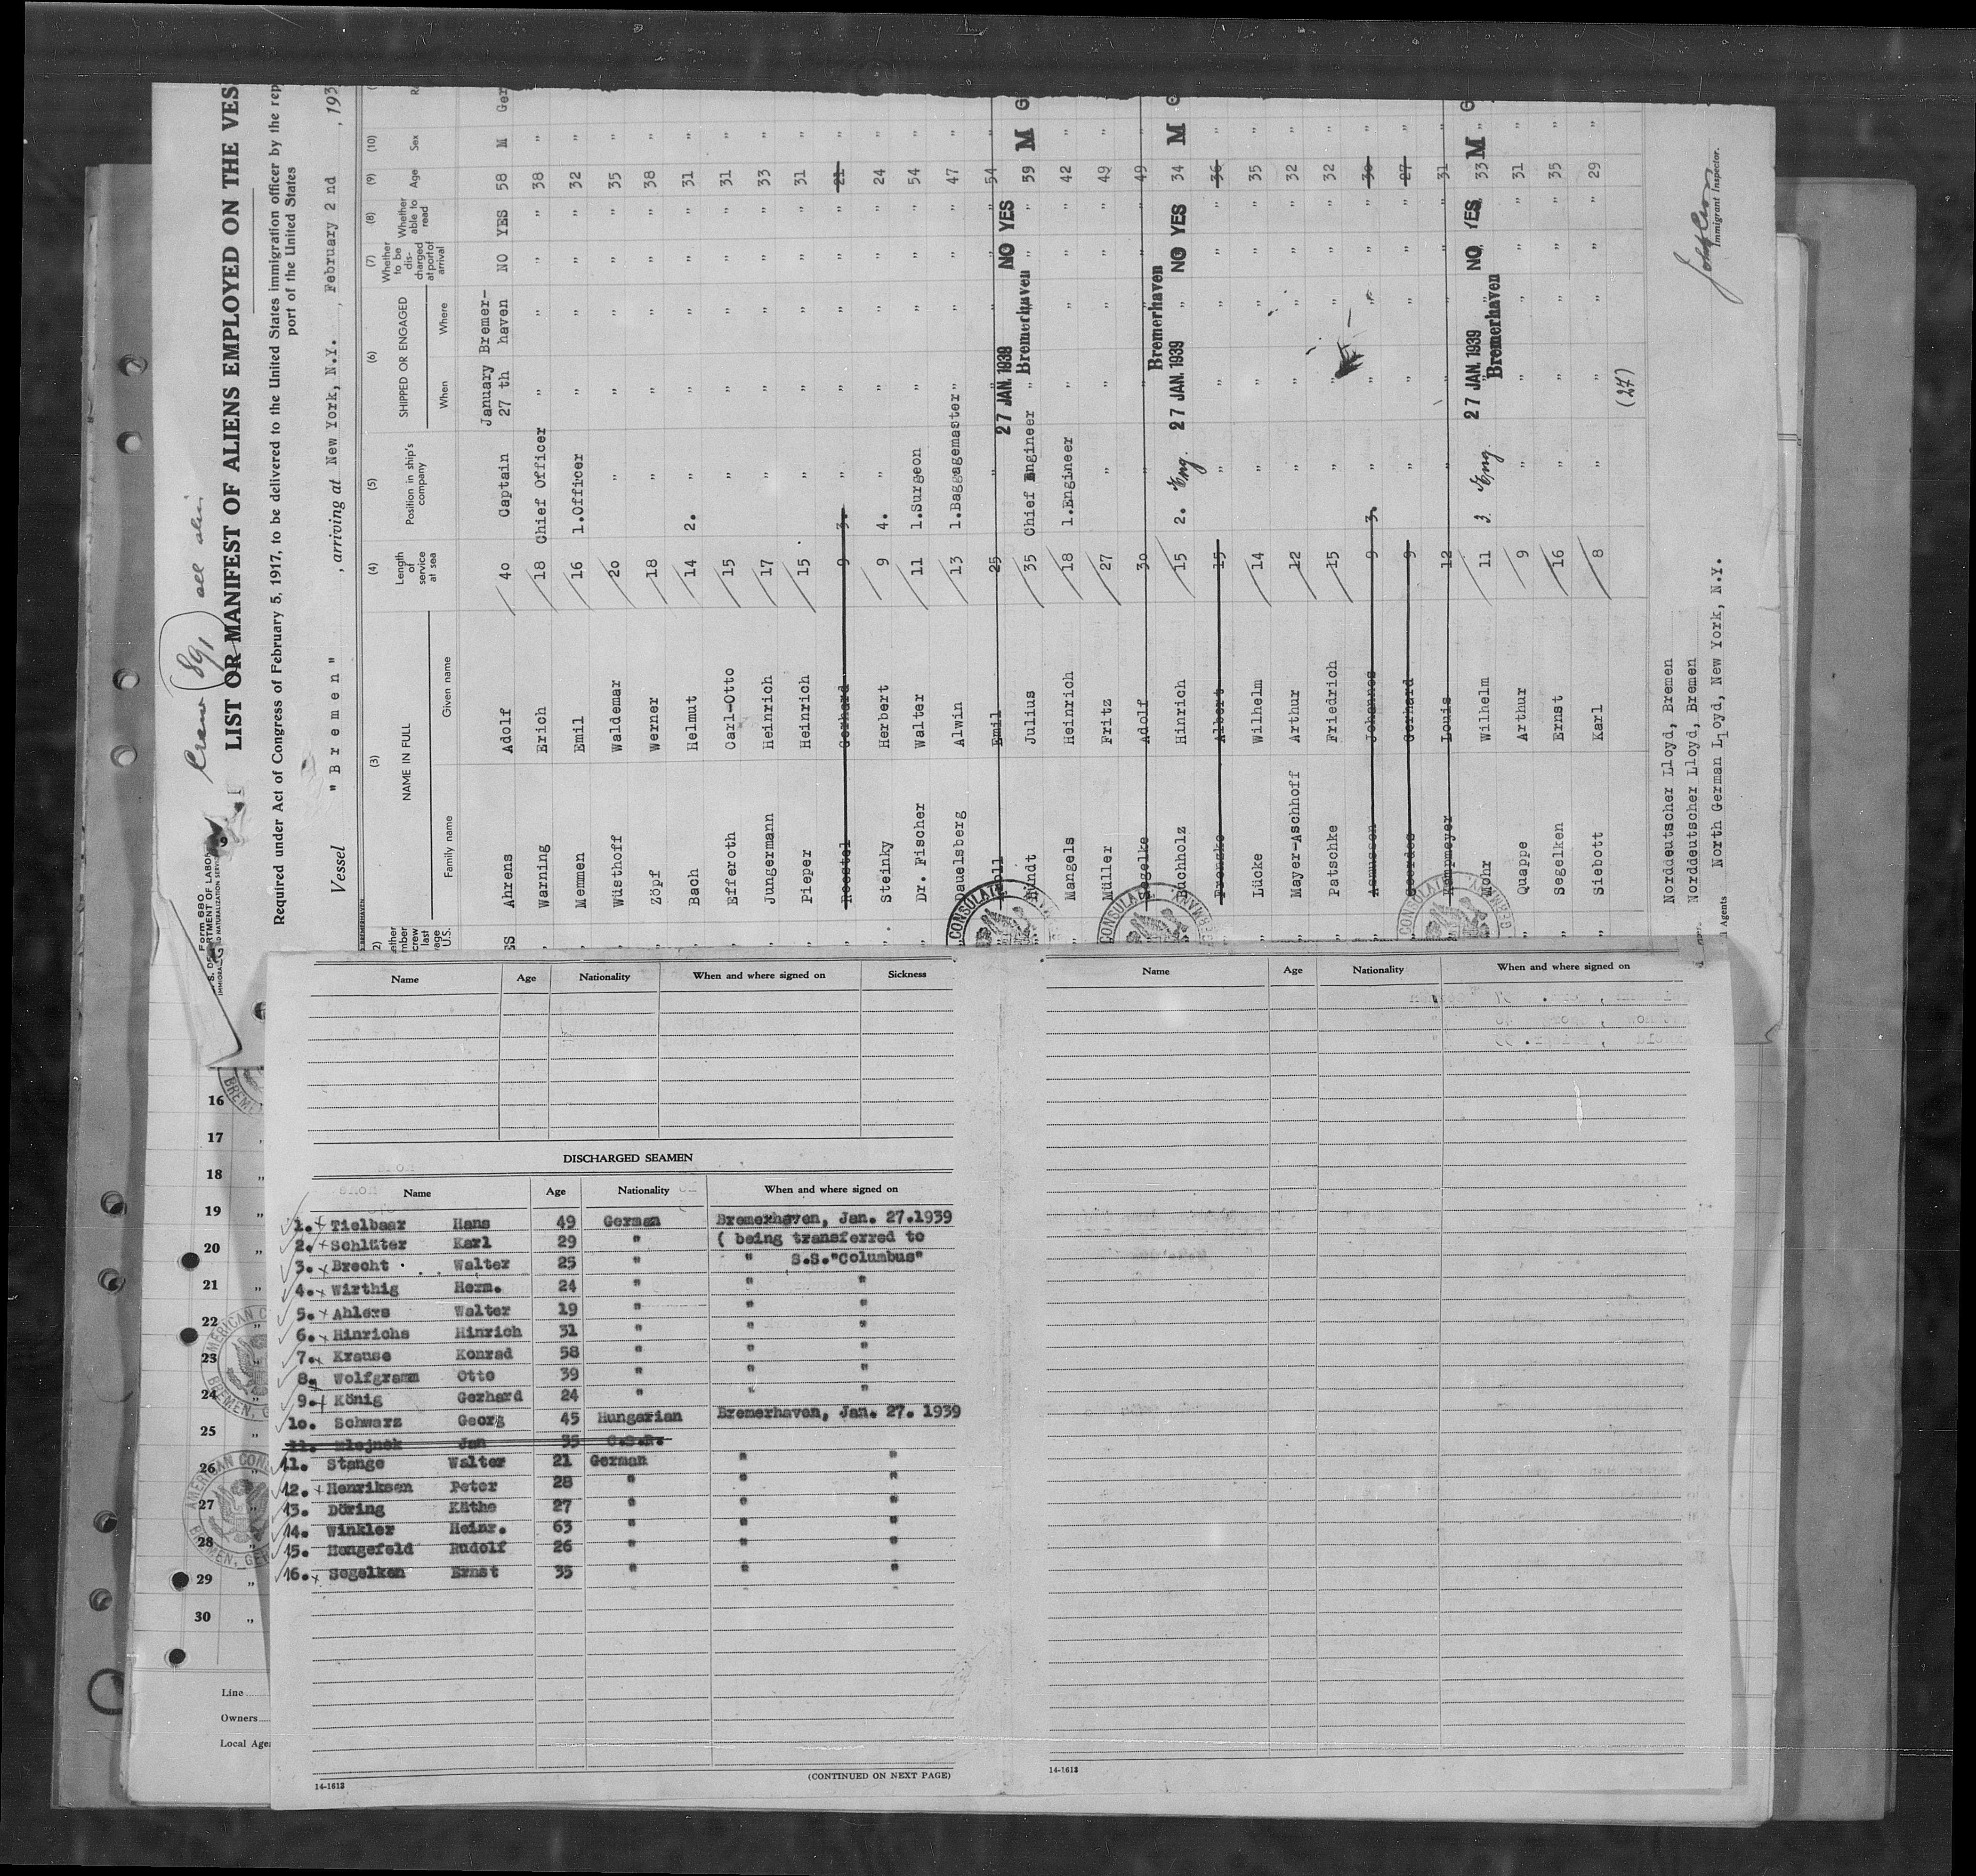 Crew 891 all alien
Form 680
U.S. DEPARTMENT OF LABOR
LIST OR MANIFEST OF ALIENS EMPLOYED ON THE VES
Required under Act of Congress of February 5, 1917, to be delivered to the United States immigration officer by the rep
port of the United States
Vessel "Bremen" , arriving at New York, N.Y. , February 2 nd , 193
(3) (4) (5) (6) (7) (8) (9) (10)
NAME IN FULL Length of service at sea Position in ship's company SHIPPED OR ENGAGED Whether to be discharged at port of arrival Whether able to read Age Sex
Family name Given name When Where
Ahrens Adolf 40 Captain January 27 th Bremer-haven NO YES 58 M Ger
Warning Erich 18 Chief Officer " " " " 38 "
Memmen Emil 16 1.Officer " " " " 32 "
Wüsthoff Waldemar 20 " " " " " 35 "
Zöpf Werner 18 " " " " " 38 "
Bach Helmut 14 2. " " " " " 31 "
Efferoth Carl-Otto 15 " " " " " 31 "
Jungermann Heinrich 17 " " " " " 33 "
Pieper Heinrich 15 " " " " " 31 "
Gerhard 9 3. " " " " " 21 "
Steinky Herbert 9 4. " " " " " 24 "
Dr. Fischer Walter 11 1.Surgeon " " " " 54 "
Dauelsberg Alwin 13 1.Baggagemaster " " " " 47 "
Emil 25 " " " " " 54 "
Mundt Julius 35 Chief Engineer 27 JAN. 1939 Bremerhaven NO YES 59 M G
Mangels Heinrich 18 1.Engineer " " " " 42 "
Müller Fritz 27 " " " " " 49 "
Segelke Adolf 30 " " " " " 49 "
Buchholz Hinrich 15 2. Eng. 27 JAN. 1939 Bremerhaven NO YES 34 M G
Albert 15 " " " " " 36 "
Lücke Wilhelm 14 " " " " " 35 "
Mayer-Aschhoff Arthur 12 " " " " " 32 "
Patschke Friedrich 15 " " " " " 32 "
Asmussen Johannes 9 3. " " " " " 30 "
Goerdes Gerhard 9 " " " " " 27 "
Kempmeyer Louis 12 " " " " " 31 "
Mohr Wilhelm 11 3. Eng. 27 JAN. 1939 Bremerhaven NO YES 33 M G
Quappe Arthur 9 " " " " " 31 "
Segelken Ernst 16 " " " " " 35 "
Siebott Karl 8 " " " " " 29 "
(27)
Norddeutscher Lloyd, Bremen
Norddeutscher Lloyd, Bremen
Agents North German Lloyd, New York, N.Y.
Immigrant Inspector.
Name Age Nationality When and where signed on Sickness
DISCHARGED SEAMEN
Name Age Nationality When and where signed on
1. Tielbaar Hans 49 German Bremerhaven, Jan. 27.1939
2. Schlüter Karl 29 " ( being transferred to
3. Brecht Walter 25 " " S.S."Columbus"
4. Wirthig Herm. 24 " " "
5. Ahlers Walter 19 " " "
6. Hinrichs Hinrich 31 " " "
7. Krause Konrad 58 " " "
8. Wolfgramm Otto 39 " " "
9. König Gerhard 24 " " "
10. Schwarz Georg 45 Hungarian Bremerhaven, Jan. 27. 1939
11. Mlejnek Jan 35 C.S.R.
11. Stange Walter 21 German " "
12. Henriksen Peter 28 " " "
13. Döring Käthe 27 " " "
14. Winkler Heinr. 63 " " "
15. Hengefeld Rudolf 26 " " "
16. Segelken Ernst 35 " " "
14-1613
(CONTINUED ON NEXT PAGE)
Name Age Nationality When and where signed on
14-1613
16
17
18
19
20
21
22
23
24
25
26
27
28
29
30
Line
Owners
Local Age